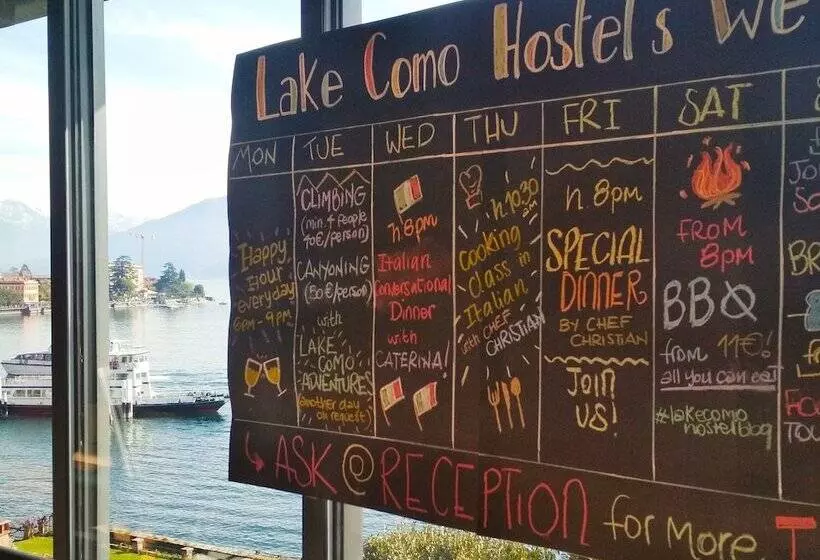 Lake Como Hostel's We
MON
TUE
WED
THU
FRI
SAT
Happy
Hour
everyday
6PM-9PM
CLIMBING
(min. 4 people
40€/person)
CANYONING
(50€/person)
with
LAKE
COMO
ADVENTURES
(another day
on request)
h 8pm
Italian
Conversational
Dinner
with
CATERINA!
h.10.30
am
Cooking
class in
Italian
with CHEF
CHRISTIAN
h. 8pm
SPECIAL
DINNER
BY CHEF
CHRISTIAN
JOIN
US!
FROM
8PM
BBQ
from 11€!
all you can eat
#lakecomo
hostelbbq
TOU
ASK @ RECEPTION for More